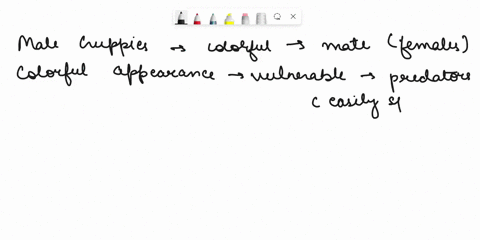 Male Guppies → colorful → mate (females)
Colorful appearance → vulnerable → predators
c easily sp